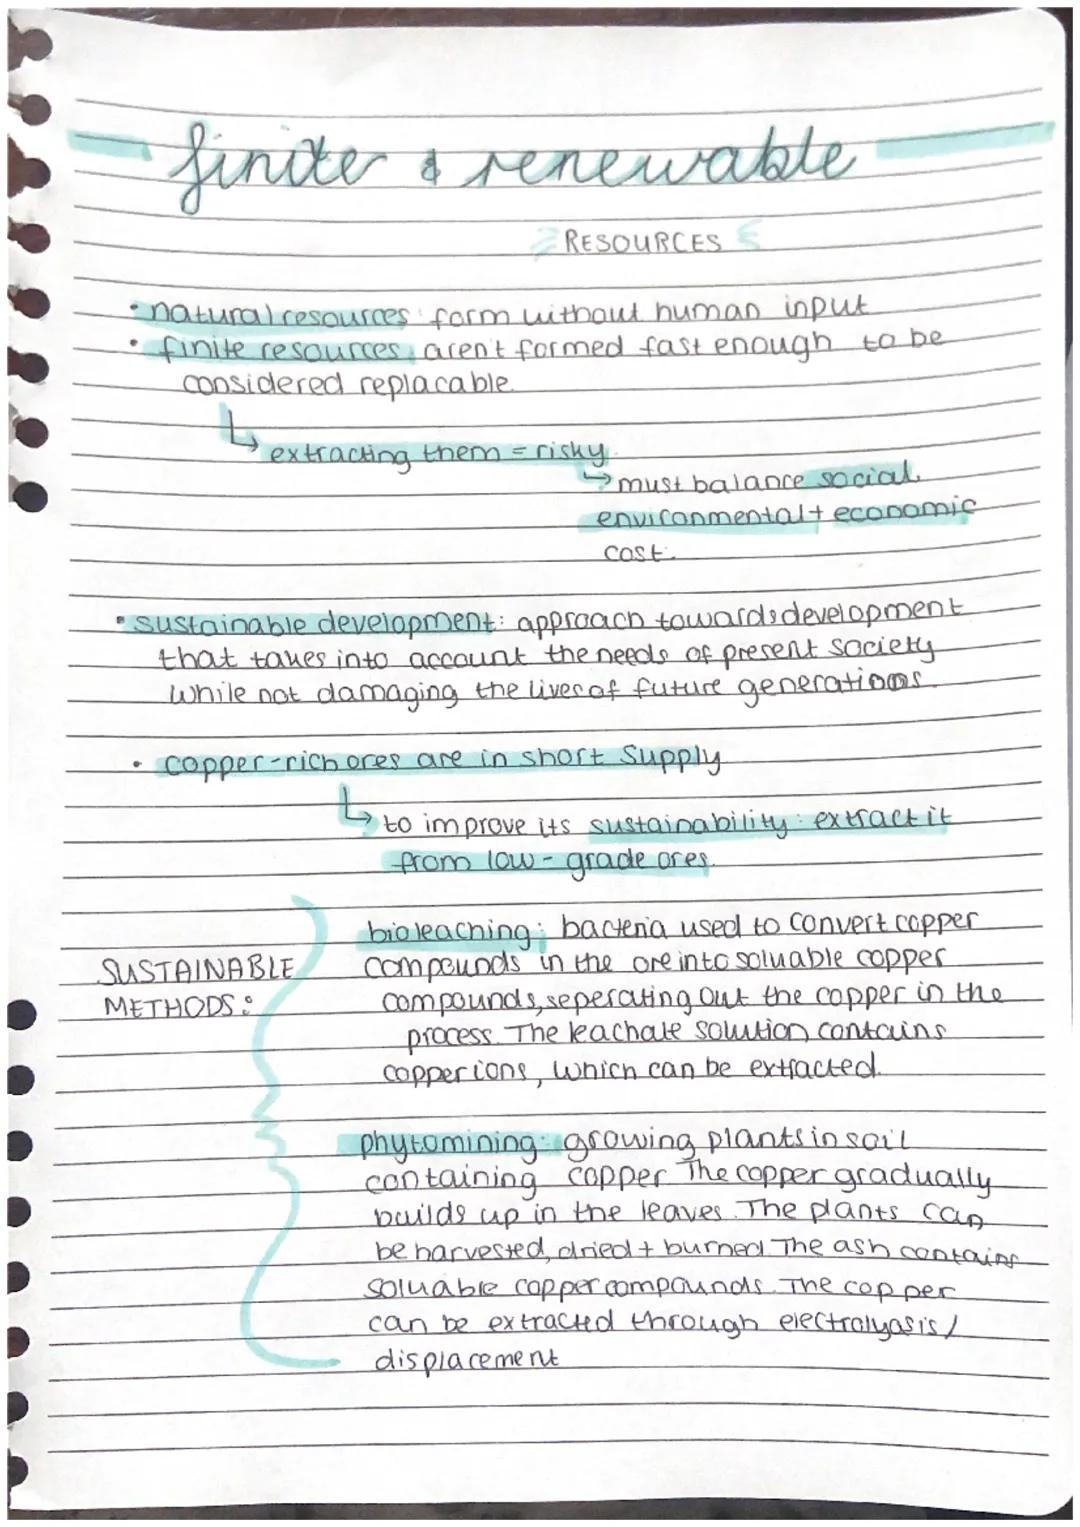 finite & renewable
RESOURCES
• natural resources: form without human input
• finite resources: aren't formed fast enough to be
considered replacable.
↳ extracting them = risky.
↳ must balance social,
environmental + economic
cost.
• sustainable development: approach towards development
that takes into account the needs of present society
while not damaging the lives of future generations.
• copper-rich ores are in short supply
↳ to improve its sustainability: extract it
from low-grade ores.
bioleaching: bacteria used to convert copper
SUSTAINABLE compounds in the ore into soluable copper
METHODS: compounds, seperating out the copper in the
process. The leachate solution contains
copper ions, which can be extracted.
phytomining: growing plants in soil
containing copper. The copper gradually
builds up in the leaves. The plants can
be harvested, dried + burned. The ash contains
soluable copper compounds. The copper
can be extracted through electrolyasis /
displacement